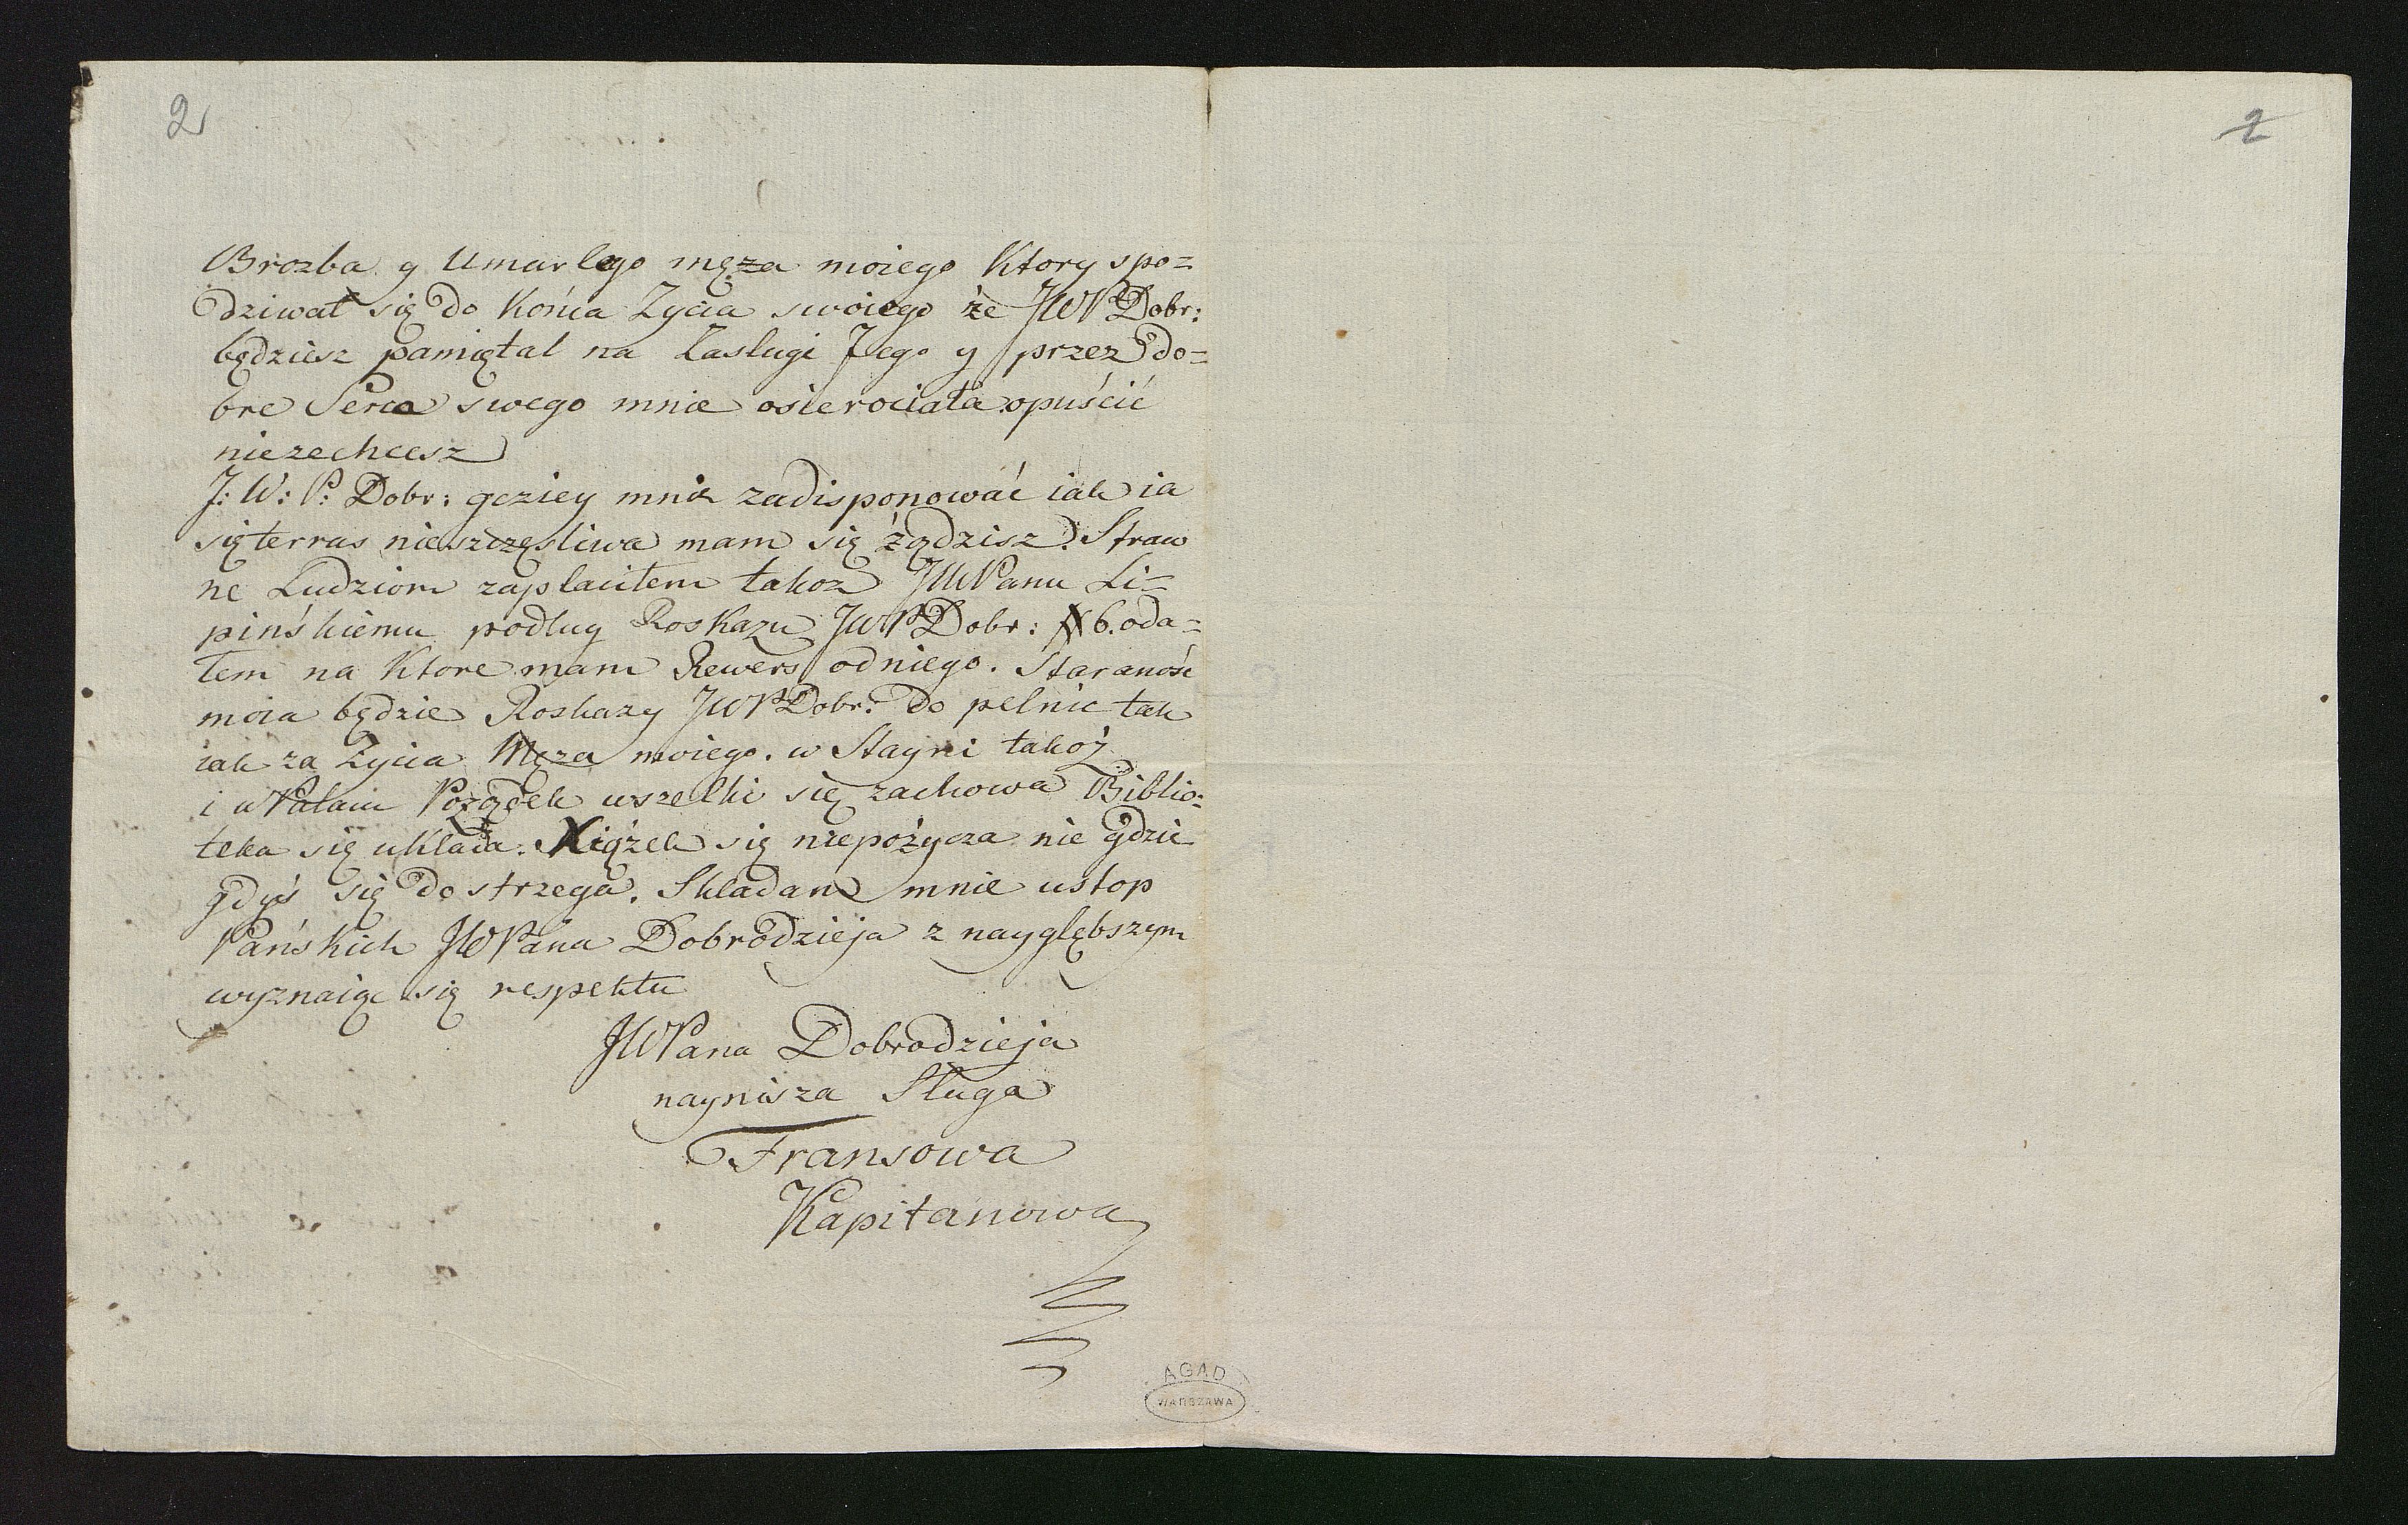 2
2
Brozba y Umarlego męza moiego Ktory spo=
dziwał się do Końca Zycia swoiego że JWP Dobr:
będziesz pamiętal na Zaslugi Jego y przez do=
bre Serca swego mnie osierociała opuścić
niezechcesz
J: W: P: Dobr: gcziey mnie zadisponować iak ia
się terras nieszczęsliwa mam się źądzisz. Straw
ne Ludziom zaplaciłem takoz JWPanu Li=
pińskiemu podlug Roskazu JWP Dobr: # 6. oda=
łem na Ktore mam Rewers od niego. Staranośc
moia będzie Roskazy JWP Dobr: do pelnic tak
iak za Zycia Męza moiego. w Stayni takoż
i w Pałacu Poządek wszelki się zachowa Biblio=
teka się uklada. Xiążek się niepożycza nie gdzie
gdyś się do strzega. Skladane mnie ustop
Pańskich JWPana Dobrodzieja z nayglębszym
wyznaiąc się respektu
JWPana Dobrodzieja
naynisza Sługa
Fransowa
Kapitanowa
AGAD
WARSZAWA